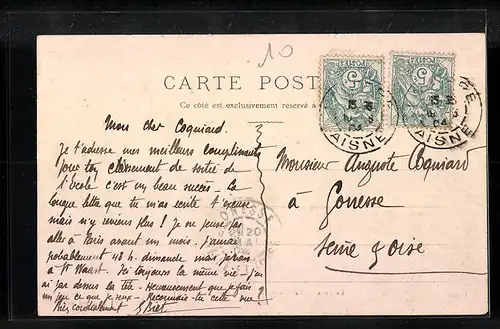 10
CARTE POST
Ce côté est exclusivement réservé à
15 E
AISNE
15 E
04
AISNE
Mon cher Coquiard.
Je t'adresse mes meilleurs compliments
pour ton classement de sortie de
l'école c'est un beau succès - La
longue lettre que tu m'as écrite t'excuse
mais n'y reviens plus ! Je ne pense pas
aller à Paris avant un mois. J'aurai
probablement 48 h. dimanche mais j'irai
à St Waast. Ici toujours la même vie - j'en
ai par dessus la tête - Heureusement que je fais
un peu ce que je veux - Reconnais-tu cette vue ?
Bien cordialement
Monsieur Auguste Coquiard
à Gonesse
Seine & Oise